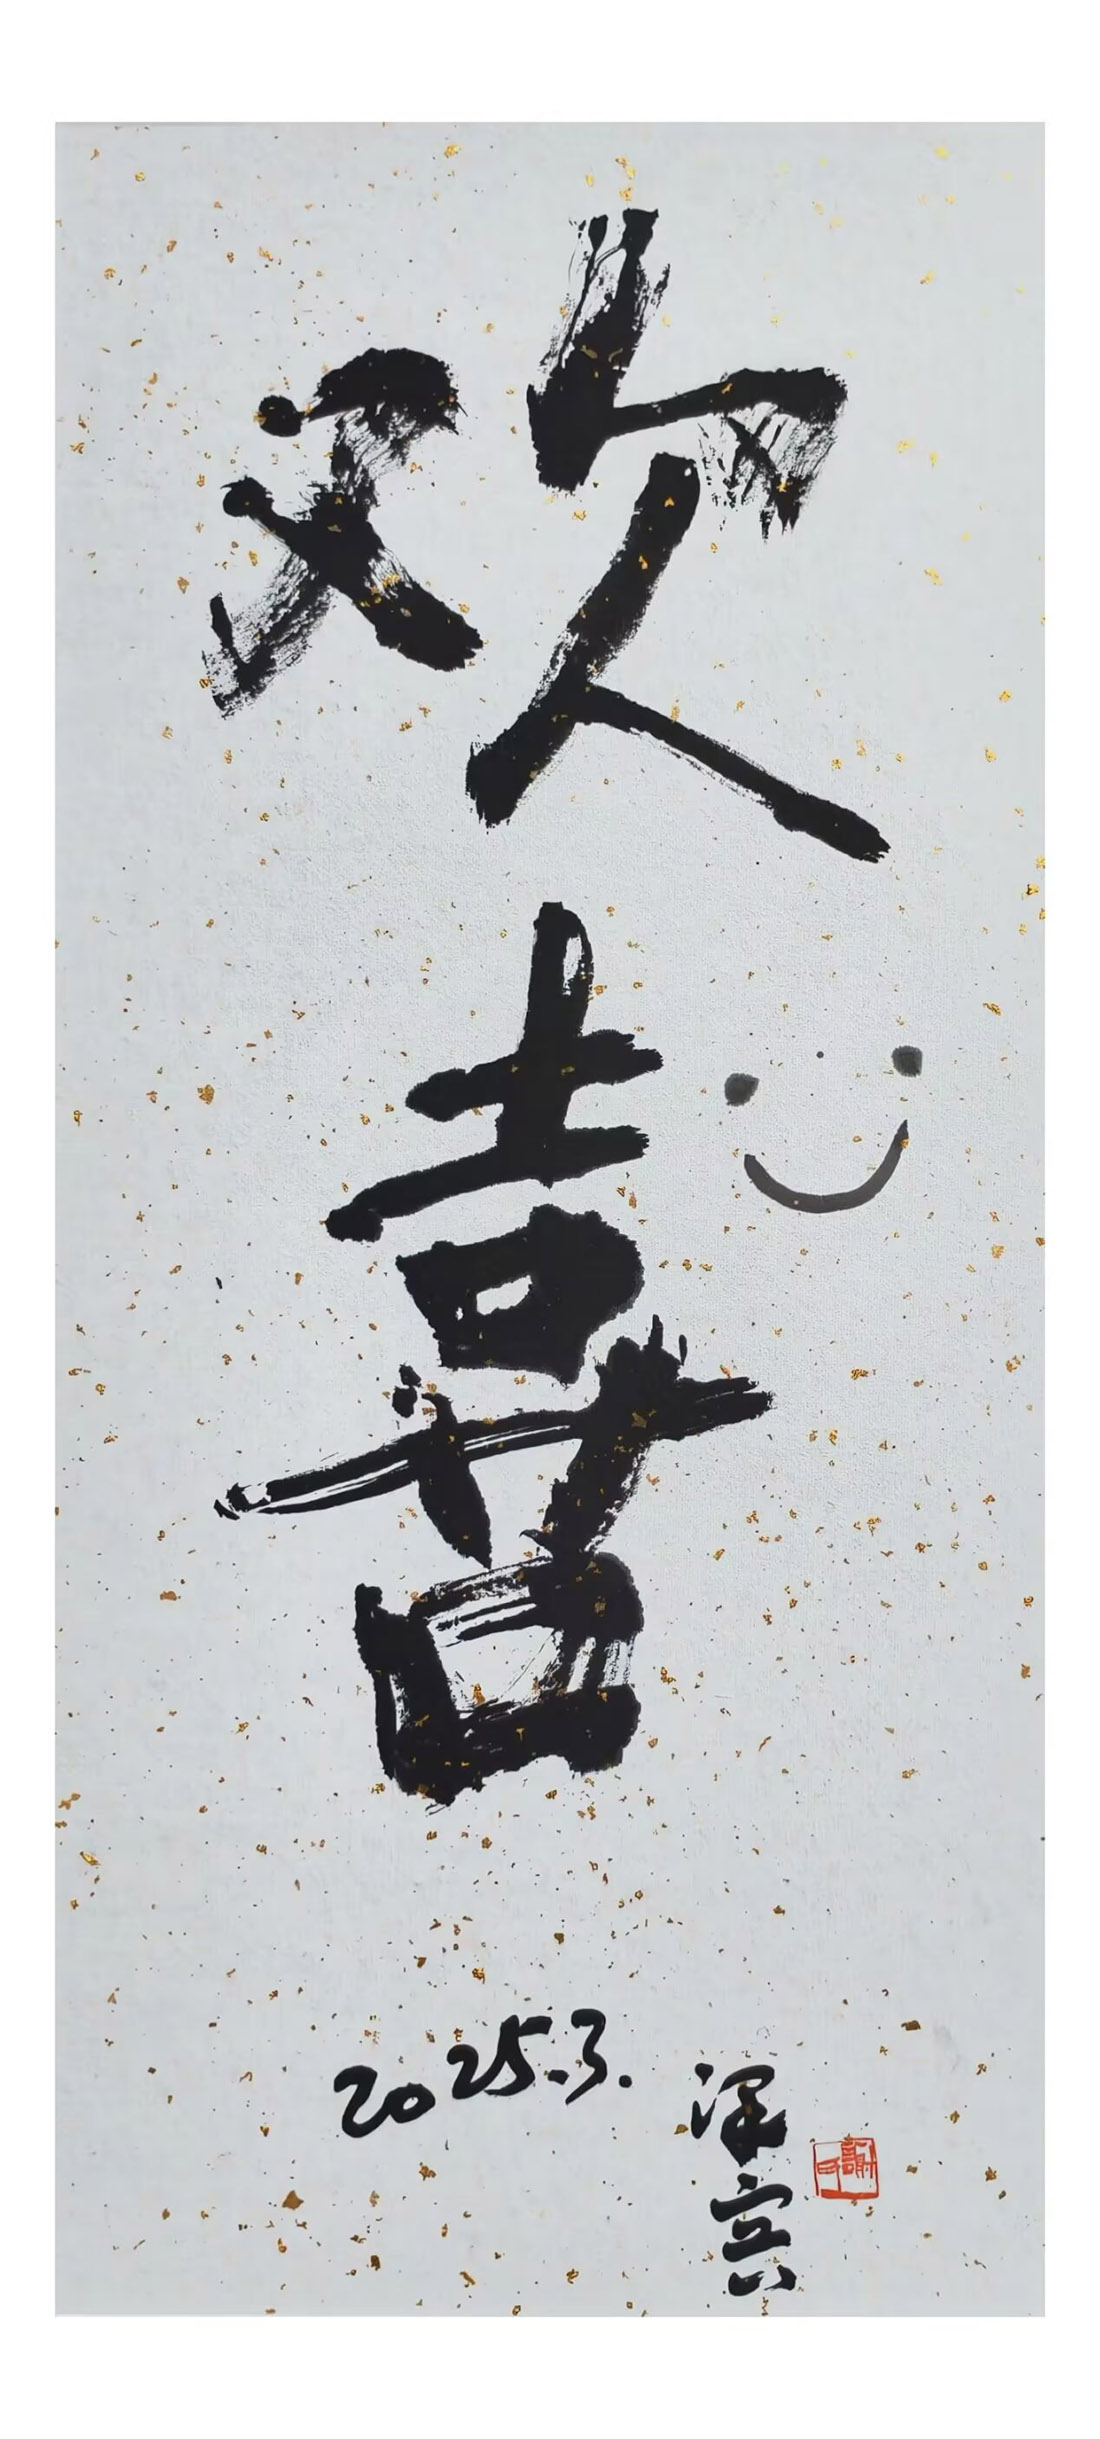 欢喜
2025.3.
泽宾